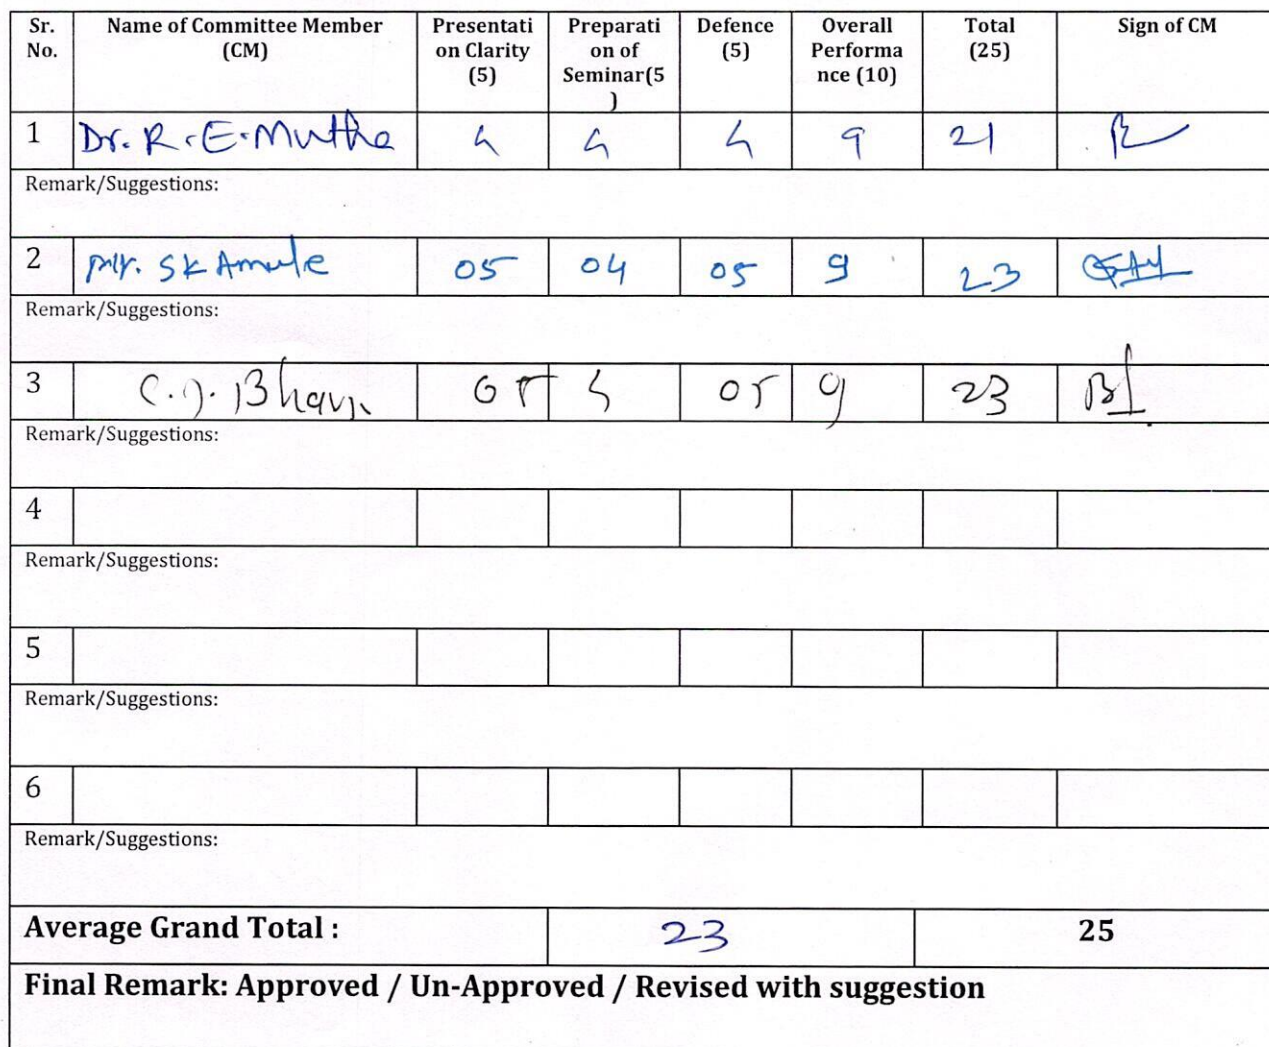 Sr. No. Name of Committee Member (CM) Presentati on Clarity (5) Preparati on of Seminar(5 ) Defence (5) Overall Performa nce (10) Total (25) Sign of CM
1 Dr. R. E. Mutha 4 4 4 9 21
Remark/Suggestions:
2 Mr. SK Amule 05 04 05 9 23
Remark/Suggestions:
3 05 4 05 9 23
Remark/Suggestions:
4
Remark/Suggestions:
5
Remark/Suggestions:
6
Remark/Suggestions:
Average Grand Total : 23 25
Final Remark: Approved / Un-Approved / Revised with suggestion